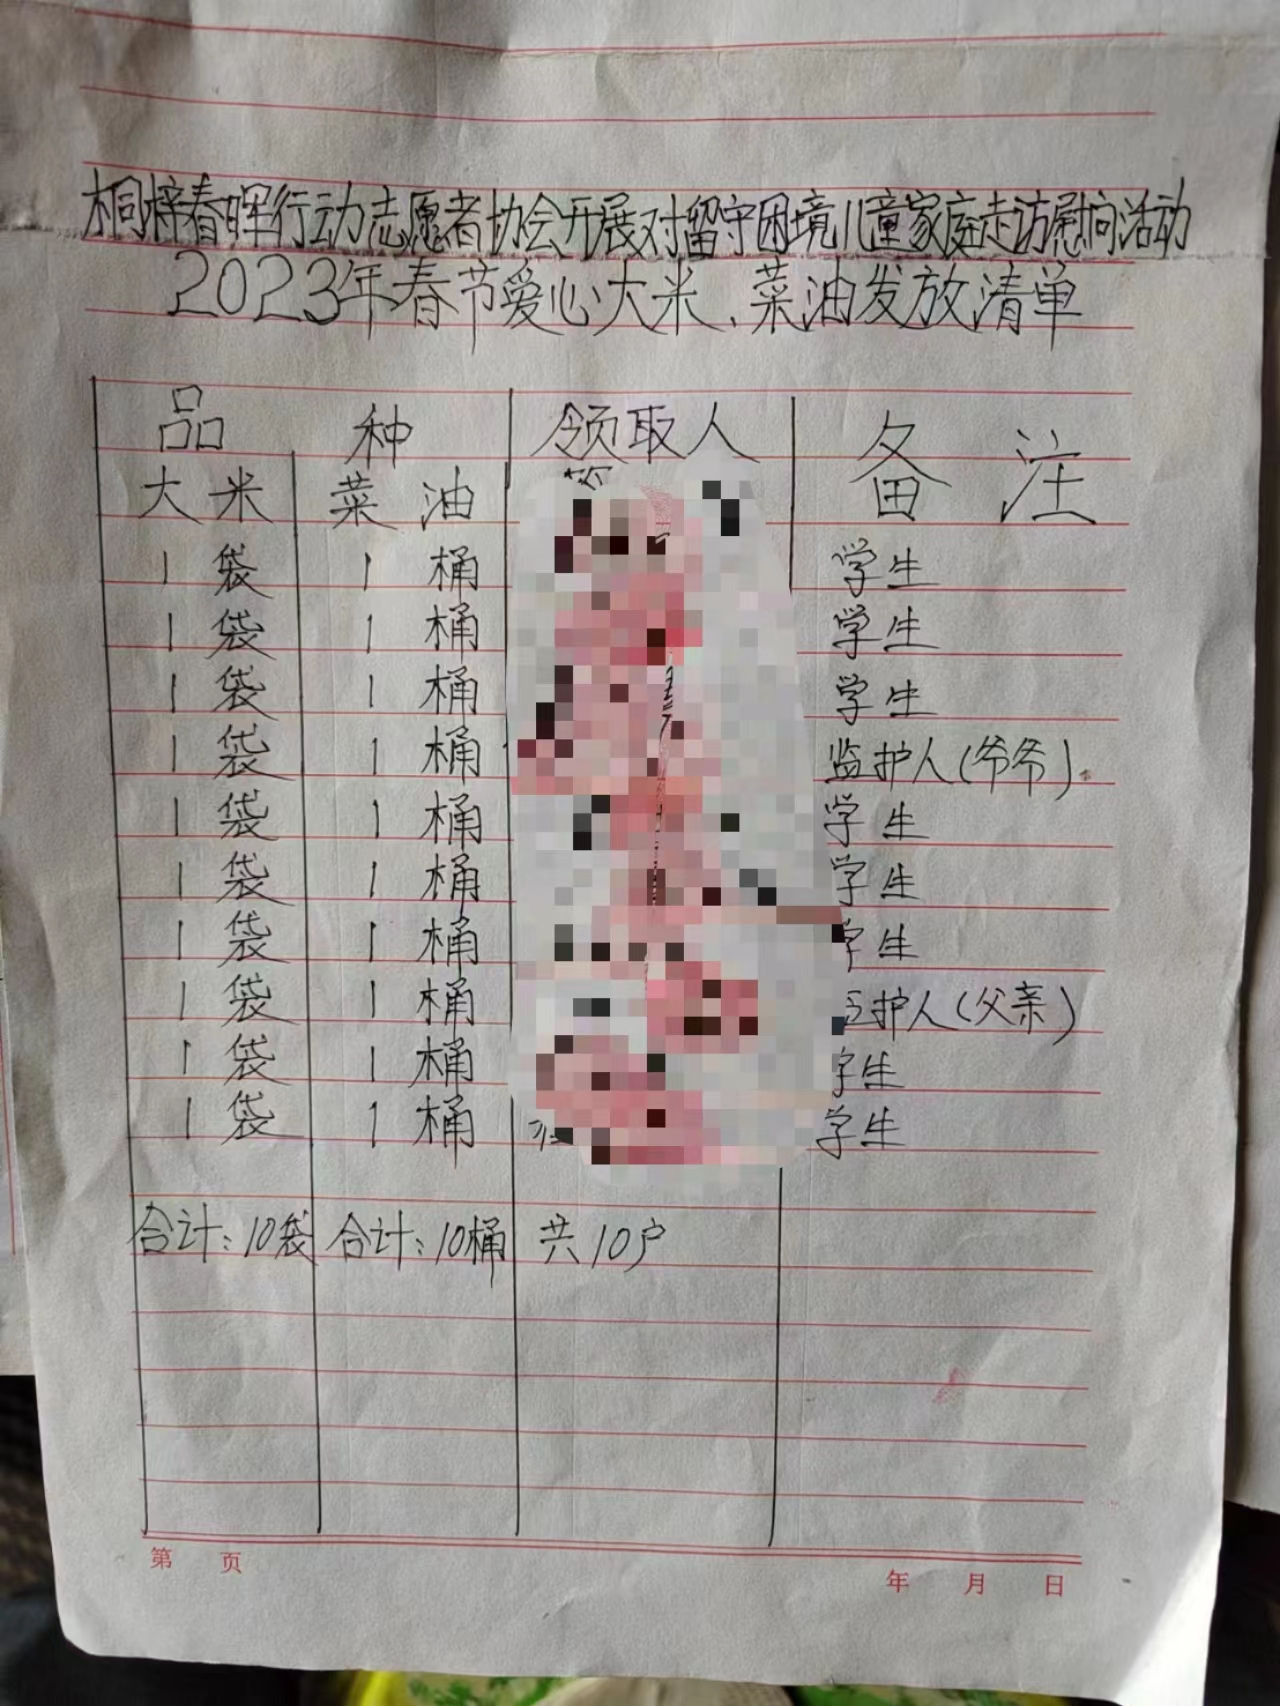 桐梓春晖行动志愿者协会开展对留守困境儿童家庭走访慰问活动
2023年春节爱心大米、菜油发放清单
品 种 领取人 备 注
大米 菜油
1 袋 1 桶 学生
1 袋 1 桶 学生
1 袋 1 桶 学生
1 袋 1 桶 监护人(爷爷)
1 袋 1 桶 学生
1 袋 1 桶 学生
1 袋 1 桶 学生
1 袋 1 桶 护人(父亲)
1 袋 1 桶 学生
1 袋 1 桶 学生
合计:10袋 合计:10桶 共10户
第 页 年 月 日